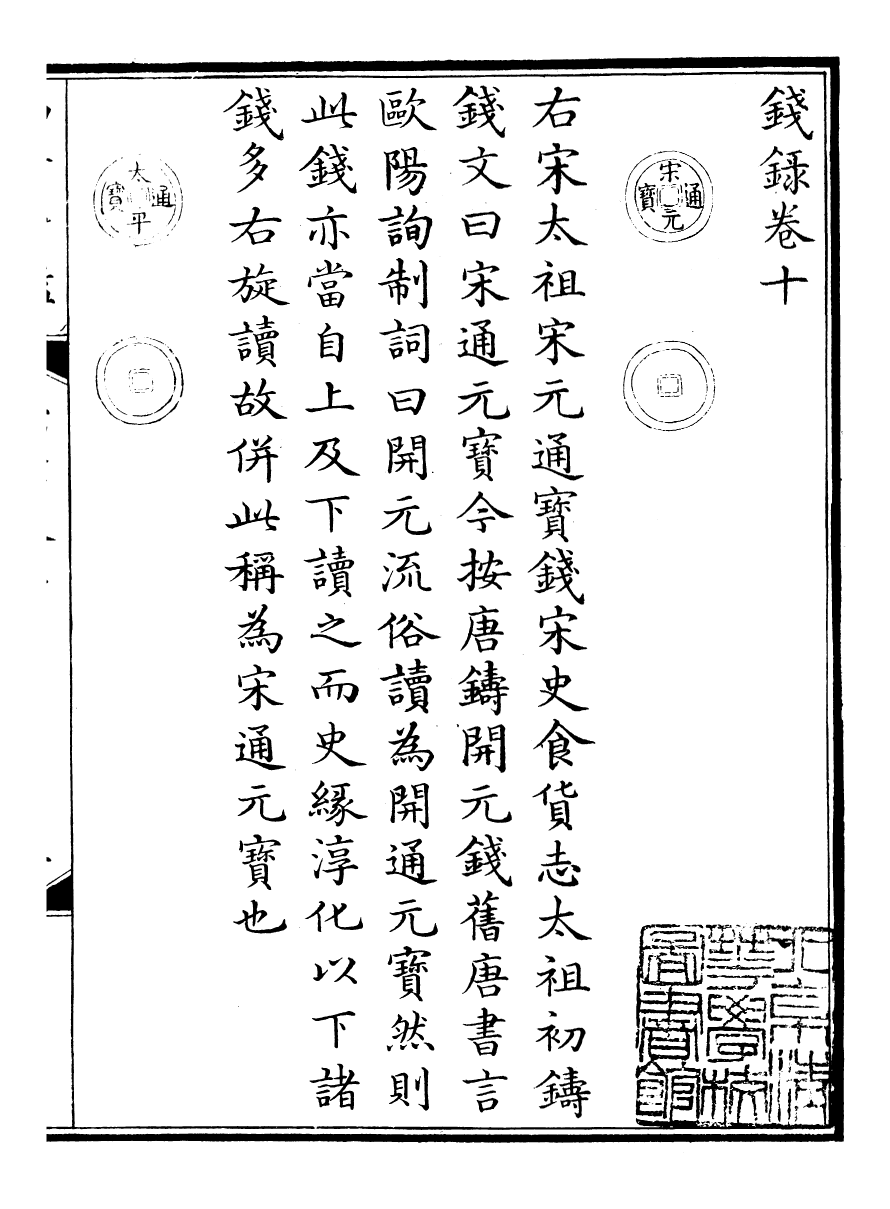 錢録卷十
宋元通寶
右宋太祖宋元通寶錢宋史食貨志太祖初鑄
錢文曰宋通元寶今按唐鑄開元錢舊唐書言
歐陽詢制詞曰開元流俗讀為開通元寶然則
此錢亦當自上及下讀之而史緣淳化以下諸
錢多右旋讀故併此稱為宋通元寶也
太平通寶